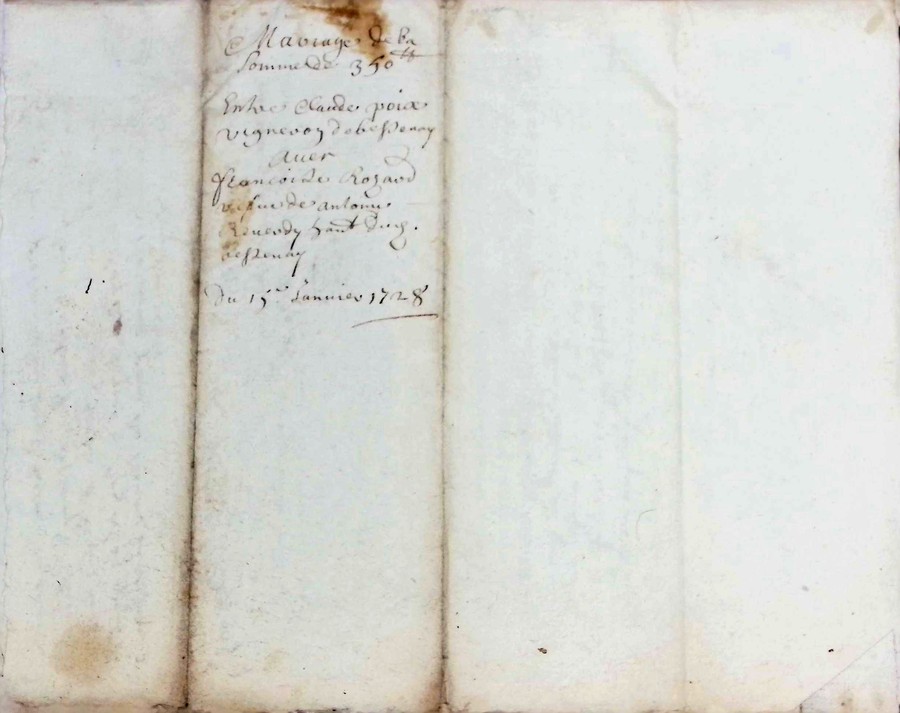 Mariage de la
Somme de 350 ₶
Entre Claude poix
vigneron de bessenay
Avec
francoise Rozard
veſue de antoine
hant du
bessenay
Du 15e Januier 1728